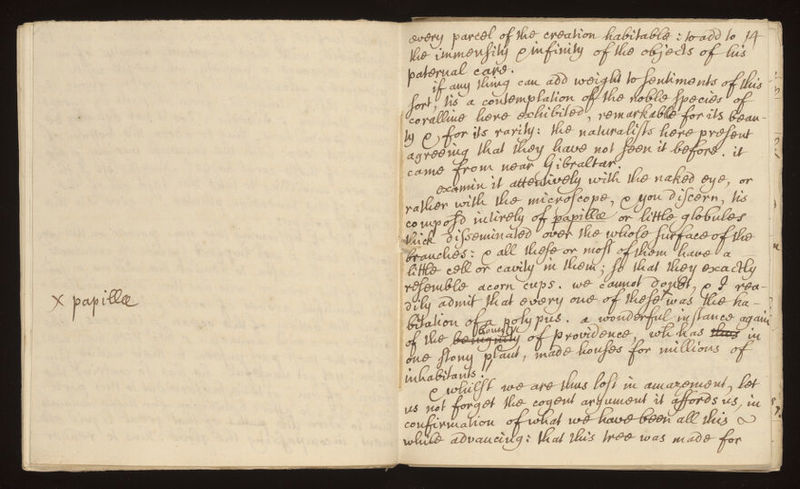 x papillæ
every parcel of the creation habitable: to add to 14
the immensity & infinity of the objects of his
paternal care.
if any thing can add weight to sentiments of this
sort, tis a contemplation of the noble species of
coralline here exhibited, remarkable for its beau-
ty & for its rarity: the naturalists here present
agreeing that they have not seen it before. it
came from near Gibraltar.
examin it attentively with the naked eye, or
rather with the microscope, & you discern, tis
compos'd intirely of papillæ or little globules
thick disseminated over the whole surface of the
branches: & all these or most of them have a
little cell or cavity in them; so that they exactly
resemble acorn cups. we cannot doubt, & I rea-
dily admit that every one of these was the ha-
bitation of a polypus. a wonderful instance again
bounty
of the benignity of providence, wh has thus in
one stony plant, made houses for millions of
inhabitants;
& whilst we are thus lost in amazement, let
us not forget the cogent argument it affords us, in
confirmation of what we have been all this
while advancing: that this tree was made for